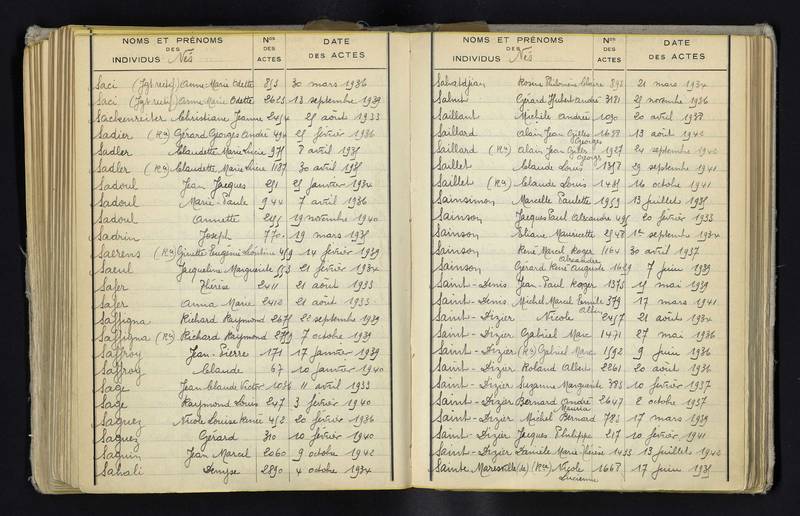 NOMS ET PRÉNOMS
DES
INDIVIDUS Nés
Nos
DES
ACTES
DATE
DES ACTES
Saci Anne Marie Odette 30 mars 1936
Saci Anne Marie Odette 2625 13 septembre 1939
Sackenreiter Christiane Jeanne 25 août 1933
Sadier (Rn) Gérard Georges André 494 25 février 1936
Sadler Claudette Marie Lucie 8 avril
Sadler (Rn) Claudette Marie Lucie 1187 30 avril
Sadoul Jean Jacques janvier 1934
Sadoul Marie Paule 944 7 avril 1936
Sadoul Annette 19 novembre 1940
Sadrin Joseph 770 19 mars
Saerens (Rn) Ginette Eugénie Léontine 14 février 1939
Saeul Jacqueline Marguerite 21 février 1934
Safer Thérèse 2411 21 août 1933
Safer Anna Marie 2412 21 août 1933
Saffigna Richard Raymond 22 septembre 1939
Saffigna (Rn) Richard Raymond 7 octobre 1939
Saffroy Jean Pierre 171 17 janvier 1939
Saffroy Claude 67 10 janvier 1940
Sage Jean Claude Victor 11 avril 1933
Sage Raymond Louis 247 3 février 1940
Saguez Nicole Louise Renée 20 février 1936
Saguez Gérard 310 10 février 1940
Saguin Jean Marcel 2060 9 octobre 1942
Sahali Denyse 2890 4 octobre 1934
NOMS ET PRÉNOMS
DES
INDIVIDUS Nés
Nos
DES
ACTES
DATE
DES ACTES
Sahatdjian Rosine 21 mars 1934
Gérard Hubert André 3181 novembre 1936
Saillant Michèle Andrée 1030 20 avril 1938
Saillard Alain Jean Gilles 1638 13 août 1942
Georges
Saillard (Rn) Alain Jean Gilles 1927 24 septembre 1942
Georges
Saillet Claude Louis septembre 1941
Saillet (Rn) Claude Louis 16 octobre 1941
Sainsimon Marcelle Paulette 1959 13 juillet
Sainson Jacques Paul Alexandre 20 février 1933
Sainson Eliane Mauricette 1er septembre 1934
Sainson René Marcel Roger 1164 30 avril 1937
Alexandre
Sainson Gérard René Auguste 7 juin 1939
Saint-Denis Jean Paul Roger 1375 mai 1939
Saint-Denis Michel Marcel Emile 379 17 mars 1941
Albin
Saint-Dizier Nicole 2457 21 août 1934
Saint-Dizier Gabriel Marc 1471 27 mai 1936
Saint-Dizier (Rn) Gabriel Marc 1592 9 juin 1936
Saint-Dizier Roland Albert 2261 20 août 1936
Saint-Dizier Suzanne Marguerite 385 10 février 1937
Saint-Dizier Bernard André 2647 2 octobre 1937
Maurice
Saint-Dizier Michel Bernard 783 17 mars 1939
Saint-Dizier Jacques Philippe 217 10 février 1941
Saint-Dizier Danièle Marie-Thérèse 1433 13 juillet 1942
Sainte Maresville (de) (Rn) Nicole 1668 17 juin
Lucienne